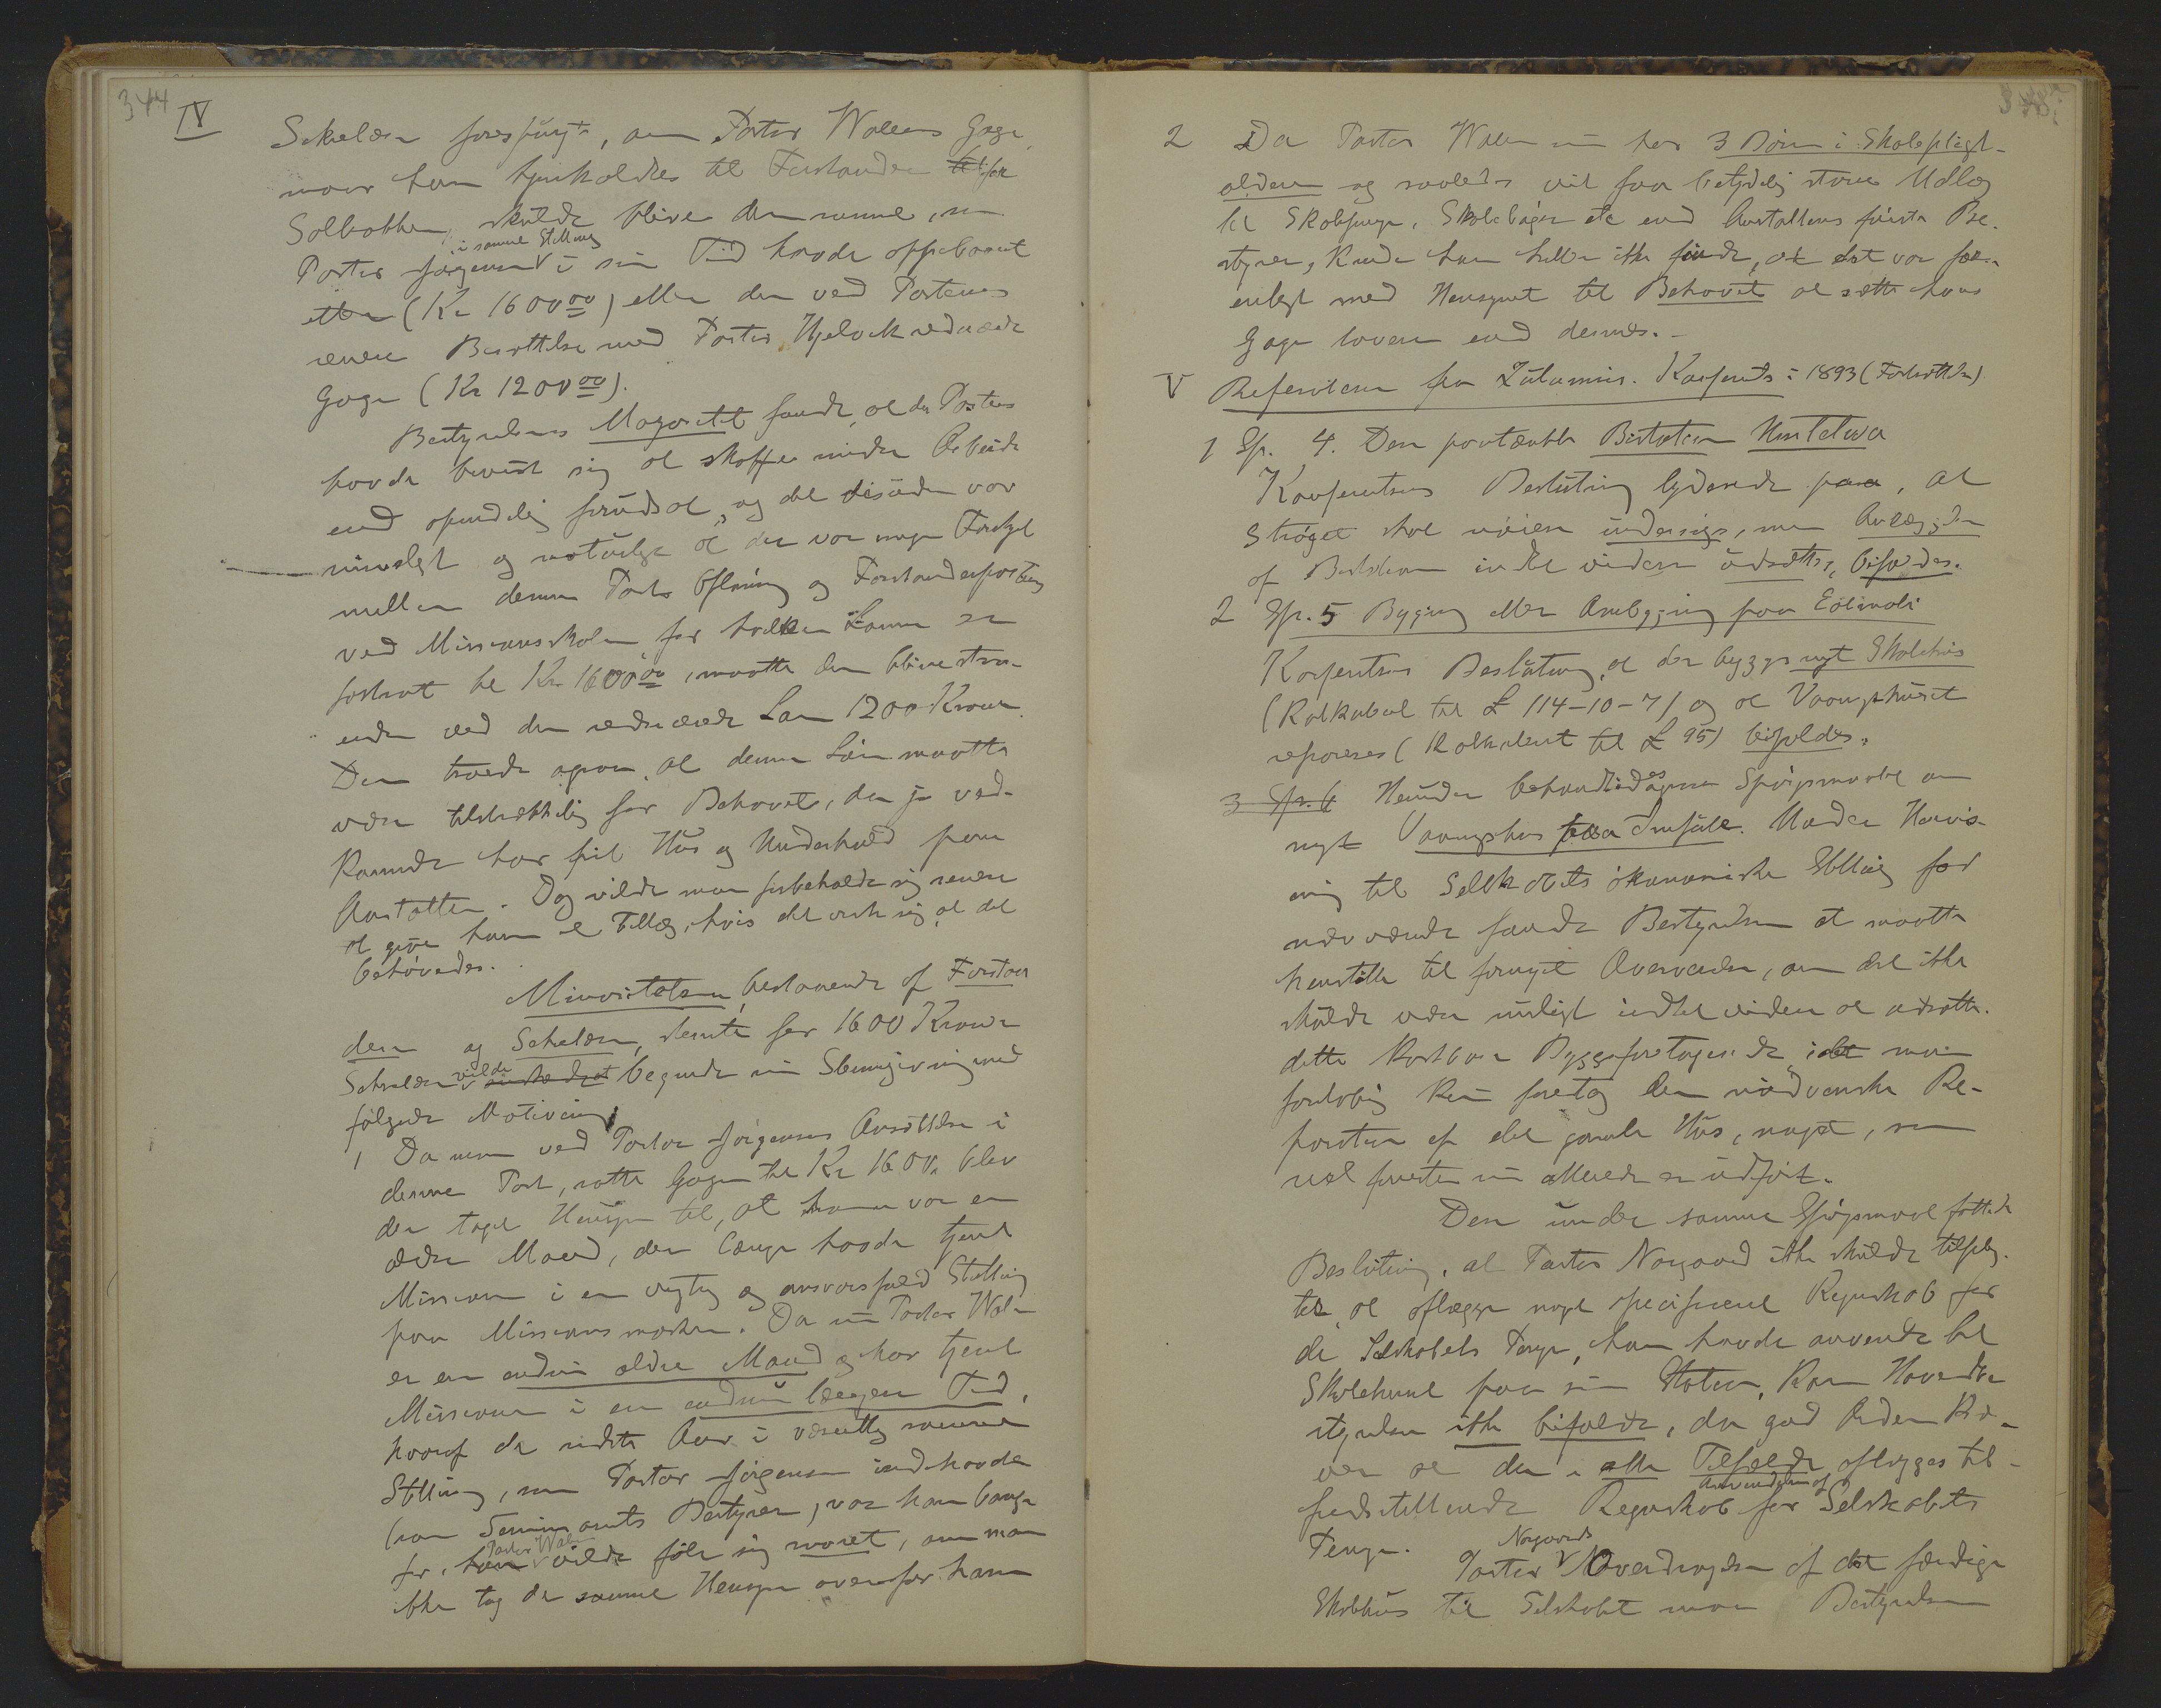 344
IV
Sekretæren forespurgte, om Pastor Wettergrens Gage,
naar han tjenstholdes til Forstander for
Solbakken, skulde blive den samme, som
i samme Stilling
Pastor Jørgensen i sin Tid havde oppebaaret
etter (Kr 1600 00) eller den ved Postens
senere Besættelse med Pastor Gjelvik reducerede
Gage (Kr 1200 00).
Bestyrelsens Majoritet fandt, at da Posten
havde bevist sig at skaffe mindre Arbeide
end oprindelig forudsat, og det desuden var
rimeligt og naturligt at der var nogen Forskjel
mellem denne Posts Aflønning og Forstanderposten
ved Missionsskolen, for hvilken Lønnen er
fastsat til Kr 1600 00, maatte den blive staa-
ende ved den reducerede Løn 1200 Kroner.
Den troede ogsaa, at denne Løn maatte
være tilstrækkelig for Behovet, da jo ved-
kommende har frit Hus og Underhold paa
Anstalten. Dog vilde man forbeholde sig senere
at give ham et Tillæg, hvis det viste sig, at det
behøvedes.
Minoriteten, bestaaende af Forstan
deren og Sekretæren, stemte for 1600 Kroner
Sekretæren vilde begrunde sin Stemmegivning med
følgende Motivering
1 Da man ved Pastor Jørgensens Ansættelse i
denne Post, satte Gagen til Kr 1600, blev
der taget Hensyn til, at han var en
ældre Mand, der længe havde tjent
Missionen i en vigtig og ansvarsfuld Stilling
paa Missionsmarken. Da nu Pastor
er en endnu ældre Mand og har tjent
Missionen i en endnu længere Tid,
hvoraf de sidste Aar i væsentlig samme
Stilling, som Pastor Jørgensen indehavde
(som Seminariets Bestyrer), var han bange
for, han vilde føle sig saaret, om man
ikke tog de samme Hensyn overfor ham
2 Da Pastor nu har 3 Børn i Skolepligt-
alderen og saaledes vil faa betydelig større Udlæg
til Skolepenge, Skolebøger etc end Anstaltens første Be-
styrer, kunde han heller ikke finde, at det var for-
enligt med Hensynet til Behovet at sætte hans
Gage lavere end dennes. –
V Referaterne fra Zulumis. Konferents i 1893 (Fortsættelse)
1 Sp. 4. Den paatænkte Bistation Umtetwa
Konferentsens Beslutning lydende paa, at
Strøget skal nøiere undersøges, men Anlæggelsen
af Bistationen indtil videre udsættes, bifaldes.
2 Sp. 5 Bygning eller Ombygning paa Eotimati
Konferentsens Beslutning, at der bygges nyt Skolehus
(Kalkuleret til £ 114-10-7) og at Vaaningshuset
repareres (Kalkuleret til £ 95) bifaldes.
3 Sp. 6 Herunder behandledes ogsaa Spørgsmaalet om
nyt Vaaningshus paa Imfule. Under Henvis-
ning til Selskabets økonomiske Stilling for
nærværende fandt Bestyrelsen at maatte
henstille til fornyet Overveielse, om det ikke
skulde være muligt indtil videre at udsætte
dette kostbare Byggeforetagende, idet man
foreløbig kun foretog den nødvendige Re-
paration af det gamle Hus, noget, som
vel forresten nu allerede er udført.
Den under samme Spørgsmaal fattede
Beslutning, at Pastor Norgaard ikke skulde tilpleig-
tes at aflægge noget specificeret Regnskab for
de Selskabets Penge, han havde anvendt til
Skolehuset paa sin Station, kan Hovedbe-
styrelsen ikke bifalde, da god Orden kræ-
ver at der i alle Tilfælde aflægges til-
fredsstillende Regnskab for Anvendelsen af Selskabets
Penge.
Pastor Norgaards Overdragelse af det færdige
Skolehus til Selskabet maa Bestyrelsen